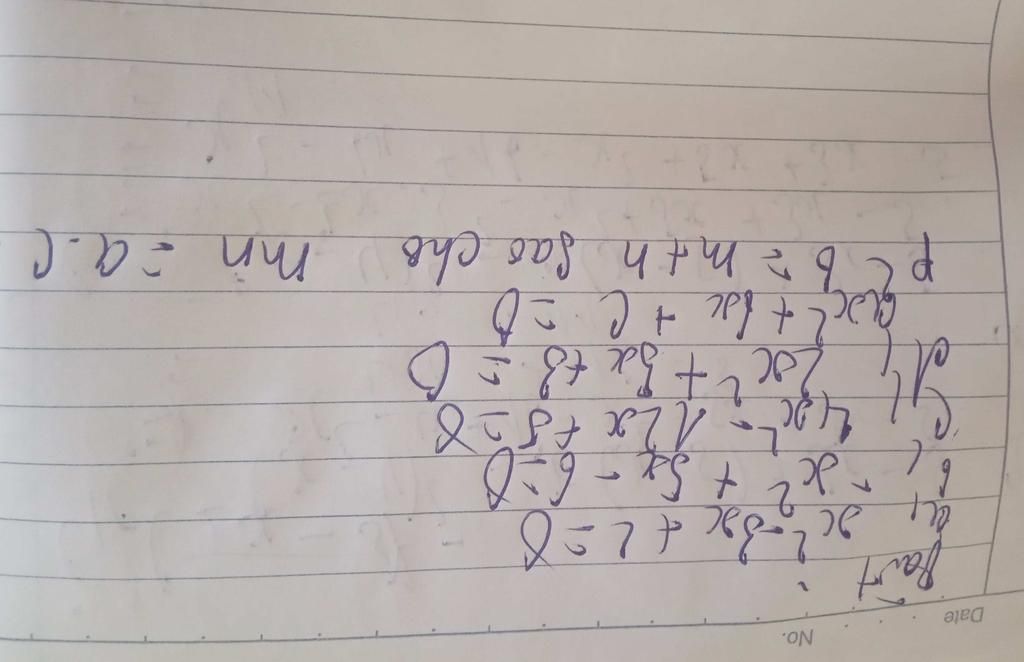 No.
Date
Bài 1
a, x² - 3x + 2 = 0
b, -x² + 5x - 6 = 0
c, 4x² - 12x + 5 = 0
d, 2x² + 5x + 3 = 0
ax² + bx + c = 0
b = m + n sao cho mn = a.c